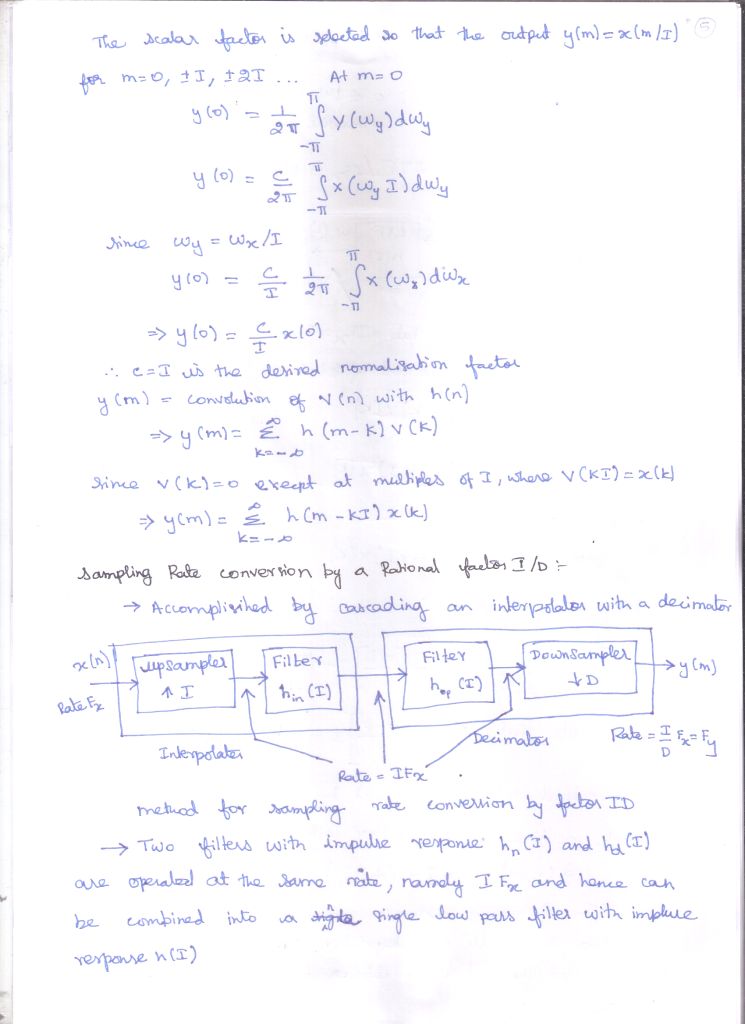 The scalar factor is selected so that the output y(m) = x(m/I) 5
for m=0, ±I, ±2I ... At m=0
y(0) = 1/2π ∫_{-π}^{π} Y(ω_y) dω_y
y(0) = C/2π ∫_{-π}^{π} x(ω_y I) dω_y
since ω_y = ω_x/I
y(0) = C/I 1/2π ∫_{-π}^{π} x(ω_x) dω_x
⇒ y(0) = C/I x(0)
∴ C=I is the desired normalisation factor
y(m) = convolution of V(n) with h(n)
⇒ y(m) = Σ_{k=-∞}^{∞} h(m-k) V(k)
since V(k)=0 except at multiples of I, where V(kI)=x(k)
⇒ y(m) = Σ_{k=-∞}^{∞} h(m-kI) x(k)
Sampling Rate conversion by a Rational factor I/D :-
→ Accomplished by cascading an interpolator with a decimator
x(n)
Rate Fx
upsampler
↑ I
Filter
h_in(I)
Filter
h_op(I)
Downsampler
↓ D
y(m)
Interpolator
Decimator
Rate = I/D Fx = Fy
Rate = IFx
method for sampling rate conversion by factor ID
→ Two filters with impulse response h_n(I) and h_d(I)
are operated at the same rate, namely I Fx and hence can
be combined into a single low pass filter with impluse
response h(I)